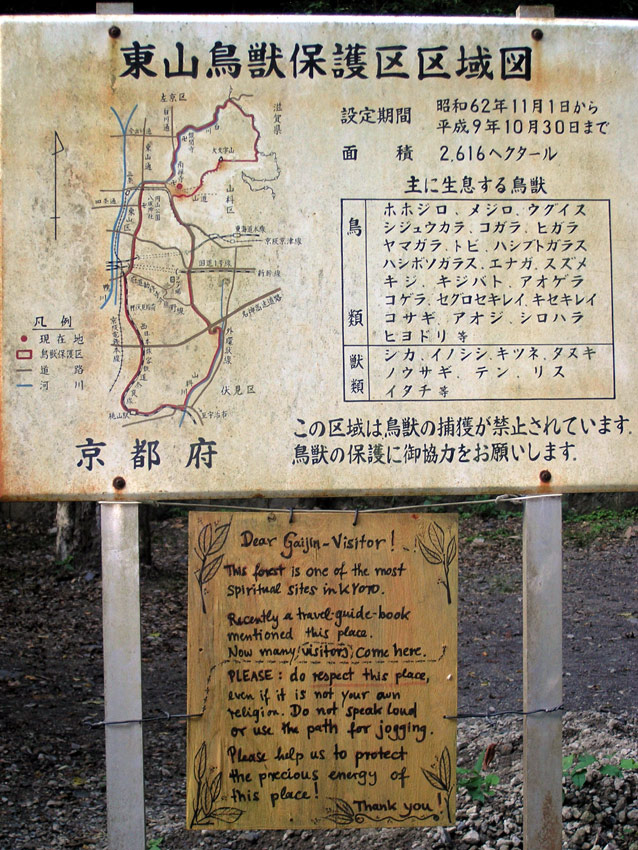 東山鳥獣保護区区域図
設定期間 昭和62年11月1日から
平成9年10月30日まで
面 積 2,616ヘクタール
主に生息する鳥獣
鳥類
ホホジロ、メジロ、ウグイス
シジュウカラ、コガラ、ヒガラ
ヤマガラ、トビ、ハシブトガラス
ハシボソガラス、エナガ、スズメ
キジ、キジバト、アオゲラ
コゲラ、セグロセキレイ、キセキレイ
コサギ、アオジ、シロハラ
ヒヨドリ 等
獣類
シカ、イノシシ、キツネ、タヌキ
ノウサギ、テン、リス
イタチ 等
この区域は鳥獣の捕獲が禁止されています。
鳥獣の保護に御協力をお願いします。
左京区
滋賀県
東山通
四条通
東山区
山科区
東海道本線
京阪京津線
国道1号線
新幹線
名神高速道路
外環状線
伏見区
桃山駅
至宇治市
凡 例
現在地
鳥獣保護区
道 路
河 川
京都府
Dear Gaijin-Visitor!
This forest is one of the most
spiritual sites in KYOTO.
Recently a travel-guide-book
mentioned this place.
Now many visitors come here.
PLEASE: do respect this place,
even if it is not your own
religion. Do not speak loud
or use the path for jogging.
Please help us to protect
the precious energy of
this place!
Thank you!